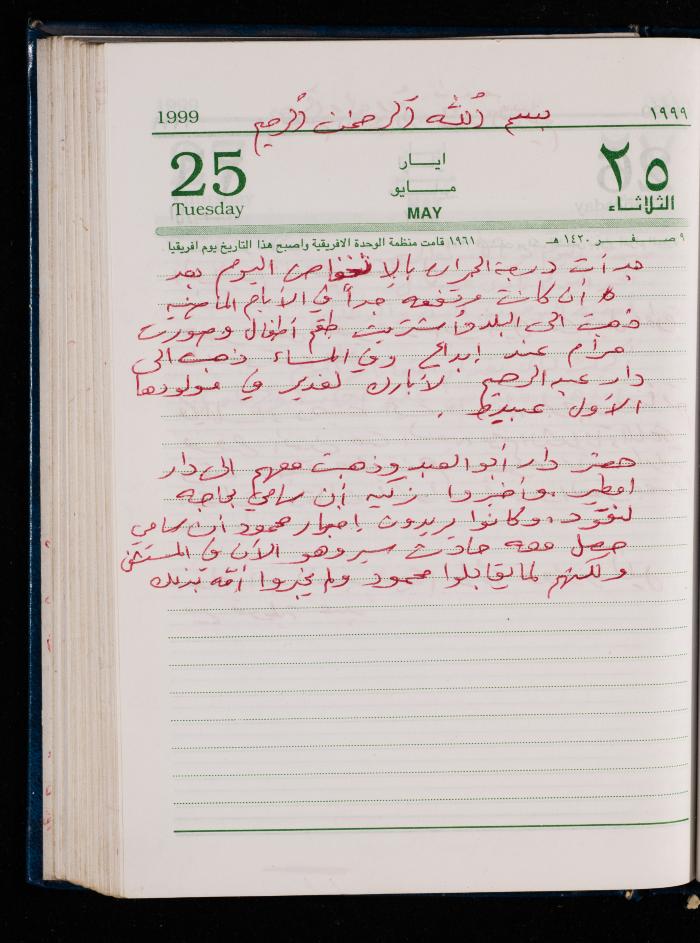 1999 بسم الله الرحمن الرحيم ١٩٩٩
25 ايار ٢٥
Tuesday مايو الثلاثاء
MAY
٩ صفر ١٤٢٠ هـ ١٩٦١ قامت منظمة الوحدة الافريقية واصبح هذا التاريخ يوم افريقيا.
بدأت درجة الحرارة بالإنخفاض اليوم بعد
أن كانت مرتفعه جداً في الأيام الماضيه
ذهبت الى البلد وأشتريت طقم أطفال وصورت
مرام عند إبداع وفي المساء ذهبت الى
دار عبد الرحيم لأبارك لغدير في مولودها
الأول عبيدة .
حضر دار أبو العبد وذهبت معهم الى دار
امطير، وأخبروا زكيه أن سامي بحاجه
لنقود، وكانوا يريدون إخبار محمود أن سامي
حصل معه حادث سير وهو الآن في المستشفى
ولكنهم لم يقابلوا محمود ولم يخبروا أمه بذلك